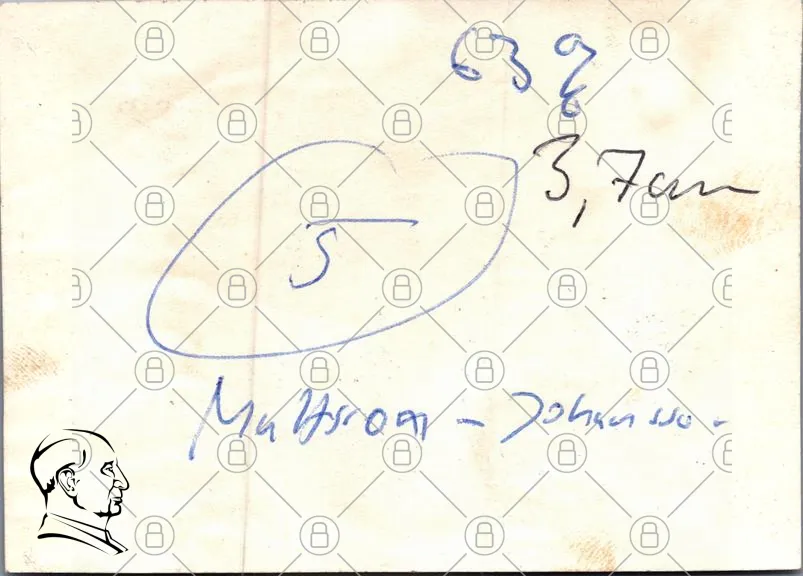 63 8
3,7cm
5
Mattsson - Johansson